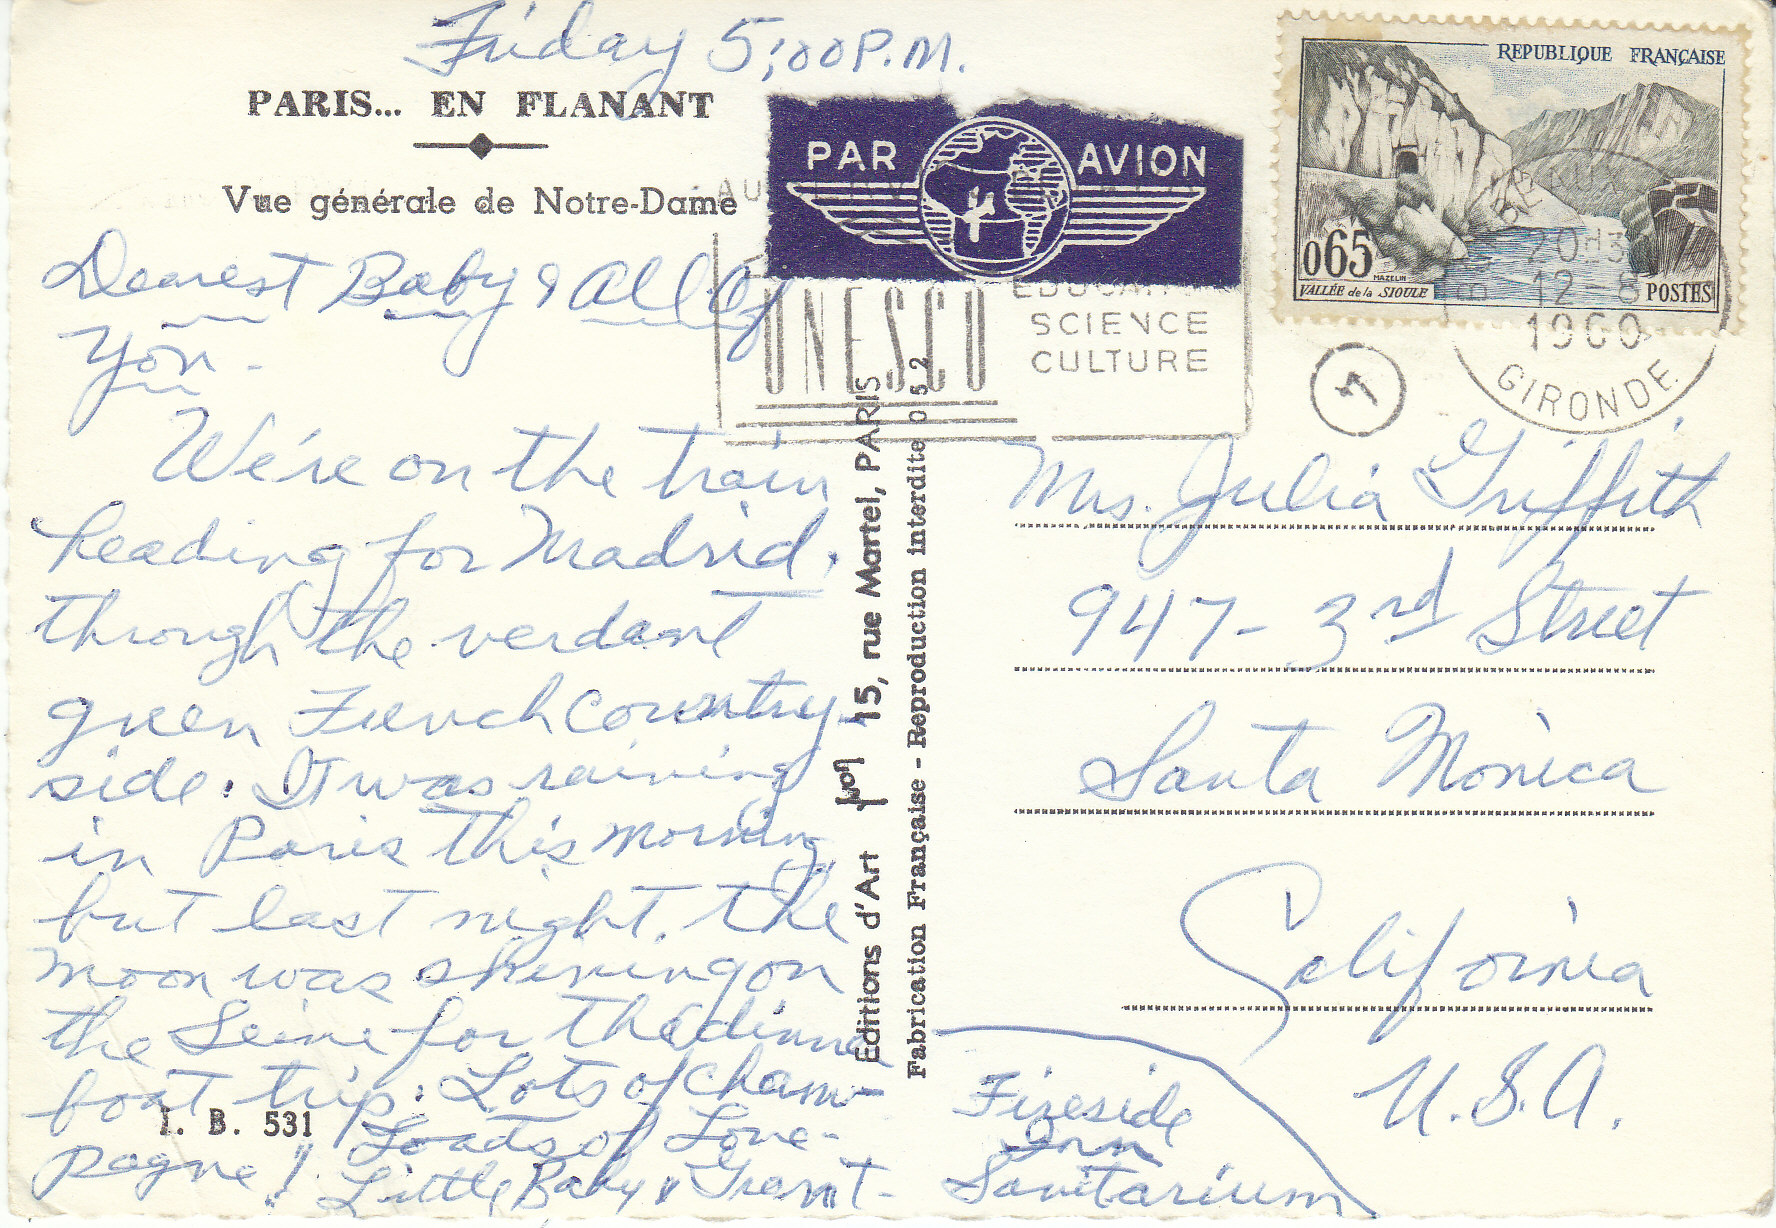 Friday 5:00 P.M.
PARIS... EN FLANANT
Vue générale de Notre-Dame
Dearest Baby & All Of
You -
We're on the train
heading for Madrid.
through the verdant
green French country-
side. It was raining
in Paris this morning,
but last night, the
moon was shining on
the Seine for the dinner
boat trip. Lots of cham-
pagne! Loads of Love -
Little Baby & Grant -
I. B. 531
Editions d'Art Yvon 15, rue Martel, PARIS
Fabrication Française - Reproduction interdite 052
PAR AVION
UNESCO
EDUCATION
SCIENCE
CULTURE
REPUBLIQUE FRANÇAISE
0,65
MAZELIN
VALLÉE de la SIOULE
POSTES
BORDEAUX
20H3
12-8
1960
GIRONDE
Mrs. Julia Griffith
947 - 3rd Street
Santa Monica
California
U.S.A.
Fireside
Inn
Sanitarium